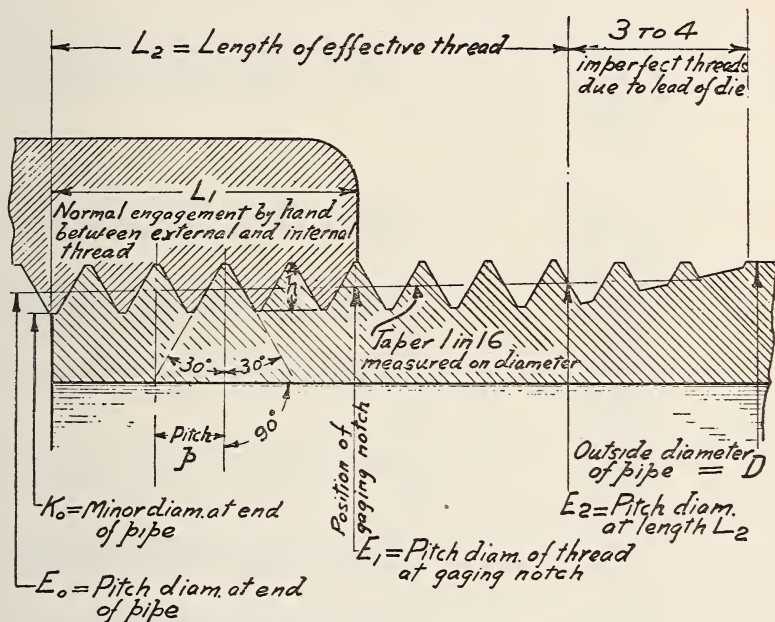 L₂ = Length of effective thread
3 TO 4
imperfect threads
due to lead of die
L₁
Normal engagement by hand
between external and internal
thread
h
Taper 1 in 16
measured on diameter
30° 30°
90°
Pitch
p
Position of
gaging notch
Outside diameter
of pipe = D
K₀ = Minor diam. at end
of pipe
E₂ = Pitch diam.
at length L₂
E₁ = Pitch diam. of thread
at gaging notch
E₀ = Pitch diam. at end
of pipe